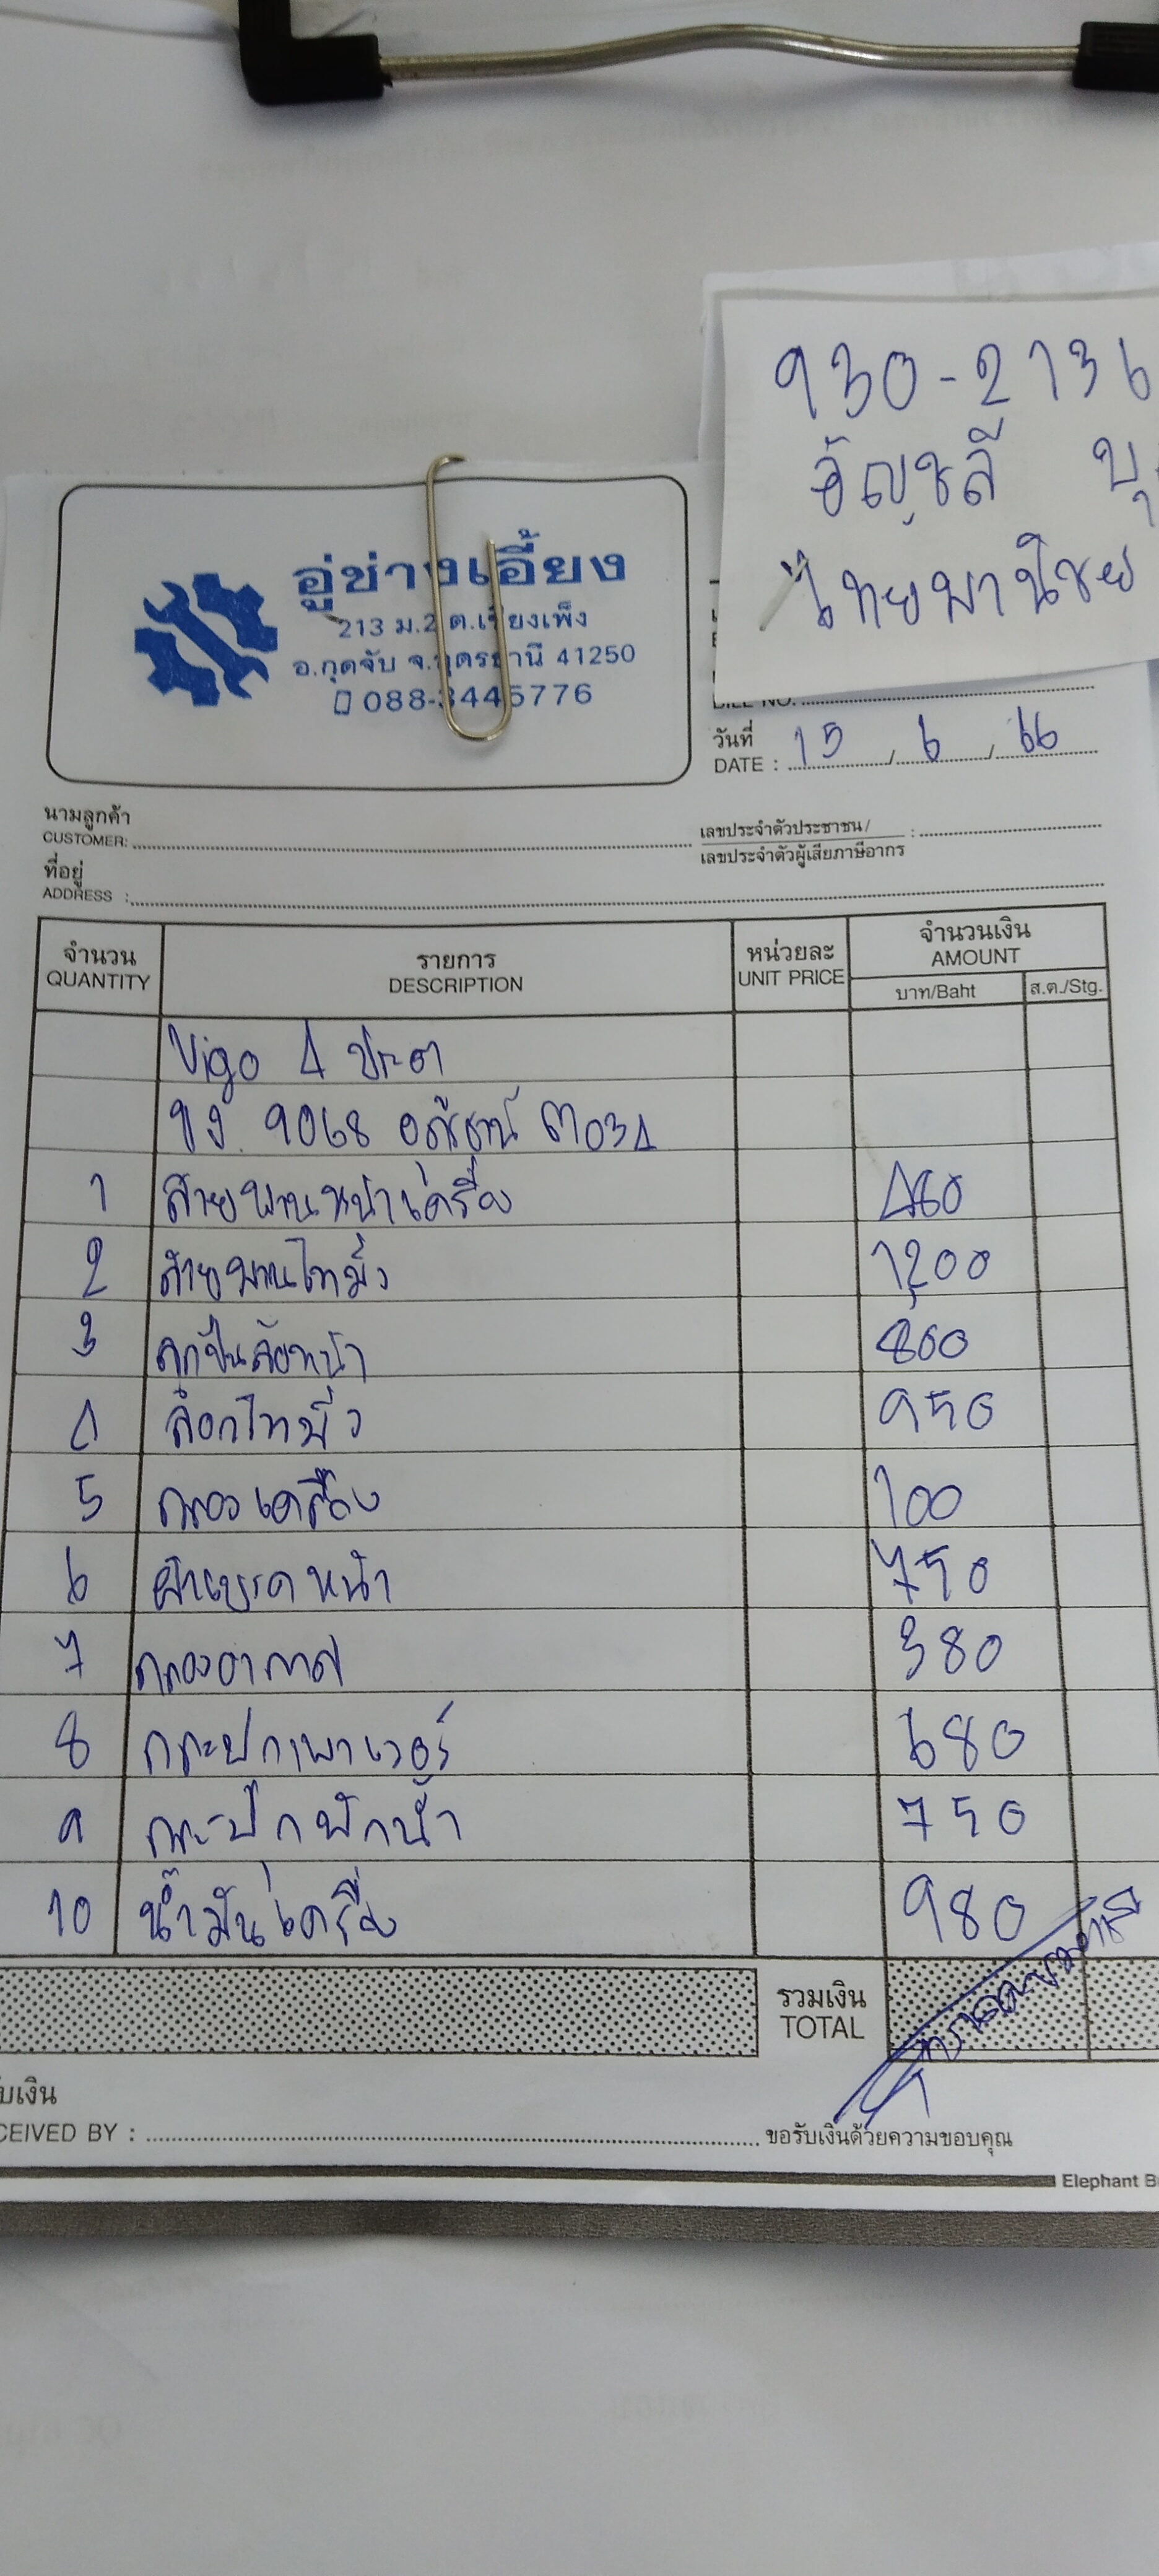 930-2136
อัญชลี บุ
ไทยพานิชย
อู่ช่างเอี้ยง
213 ม.2 ต.เชียงเพ็ง
อ.กุดจับ จ.อุดรธานี 41250
088-3445776
BILL NO.
วันที่
DATE : 15 / 6 / 66
นามลูกค้า
CUSTOMER:
เลขประจำตัวประชาชน/
เลขประจำตัวผู้เสียภาษีอากร
ที่อยู่
ADDRESS :
จำนวน รายการ หน่วยละ จำนวนเงิน
QUANTITY DESCRIPTION UNIT PRICE AMOUNT
บาท/Baht ส.ต./Stg.
Vigo 4 ประตู
ขง. 9068 อุดรธานี
1 สายพานหน้าเครื่อง 460
2 สายพานไทมิ่ง 1200
3 ลูกปืนล้อหน้า 860
4 ลอกไทมิ่ง 950
5 กรองเครื่อง 100
6 ผ้าเบรคหน้า 750
7 กรองอากาศ 380
8 กระปุกเพาเวอร์ 680
9 กระป๋กพักน้ำ 750
10 น้ำมันเครื่อง 980
รวมเงิน
TOTAL
ับเงิน
CEIVED BY : ขอรับเงินด้วยความขอบคุณ
Elephant B